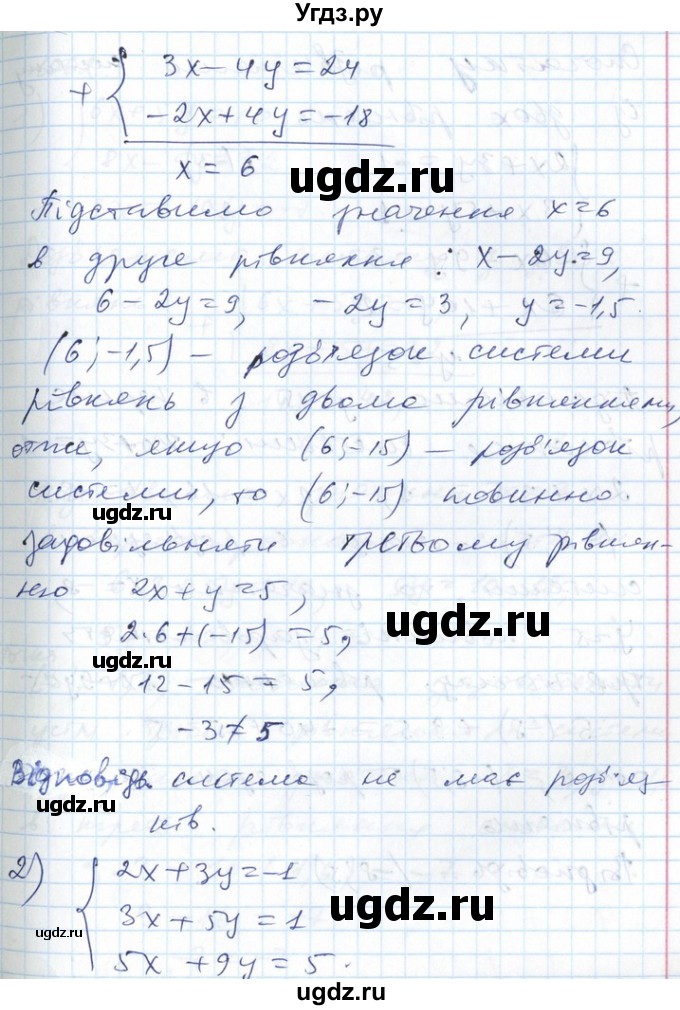 Угдз.ру
3x - 4y = 24
+
-2x + 4y = -18
x = 6
ugdz.ru
Підставимо значення x=6
в друге рівняння: x - 2y = 9,
6 - 2y = 9, -2y = 3, y = -1,5.
(6; -1,5) - розв'язок системи
рівнянь з двома рівняннями,
отже, якщо (6; -15) - розв'язок
системи, то (6; -15) повинно
ugdz.ru
задовільняти третьому рівнян-
ugdz.ru
ню 2x + y = 5,
2·6 + (-15) = 5,
ugdz.ru
12 - 15 = 5,
-3 ≠ 5
Відповідь система не має розв'яз
ugdz.ru
ків.
2) 2x + 3y = -1
3x + 5y = 1
ugdz.ru
ugdz.ru
5x + 9y = 5.
ugdz.ru